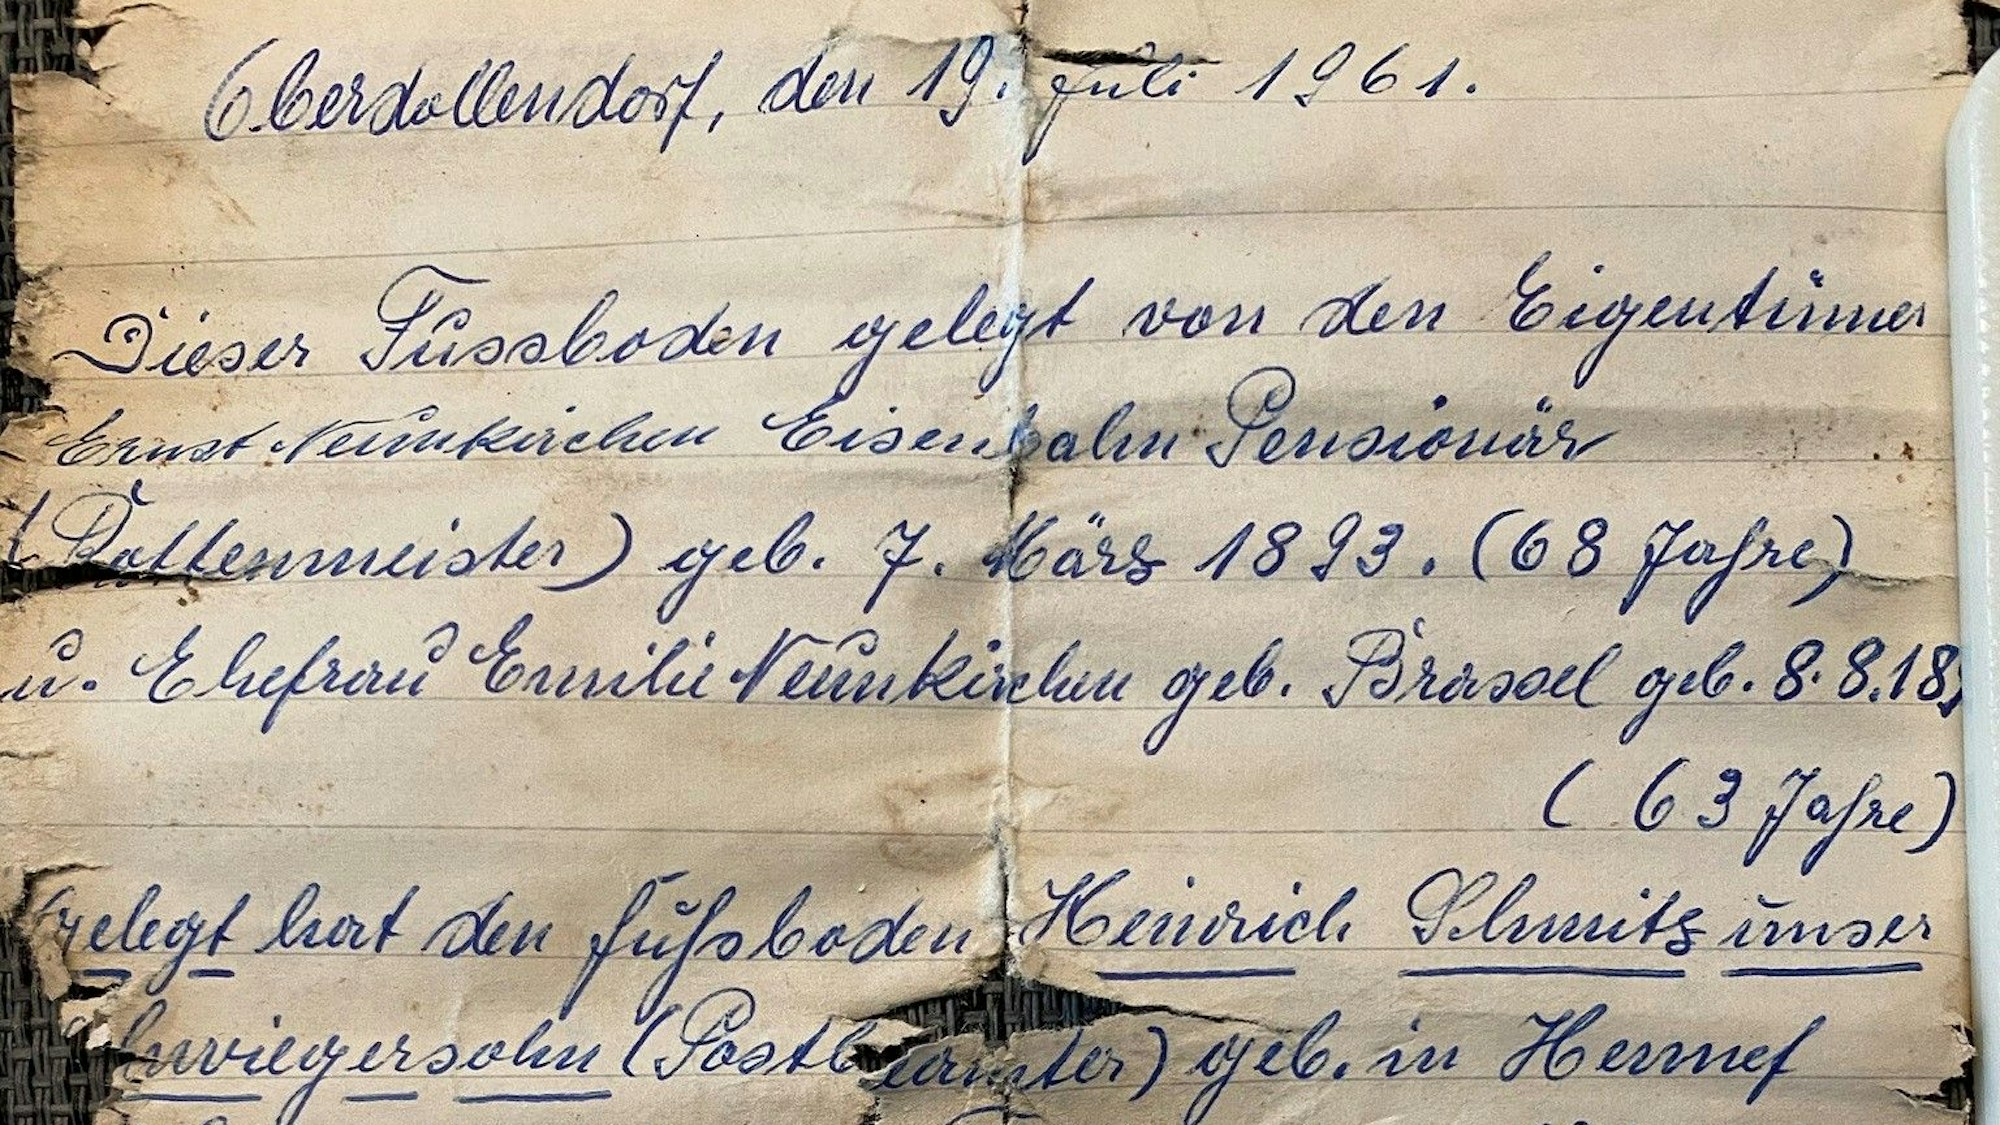 Oberdollendorf, den 19. Juli 1961.
Dieser Fussboden gelegt von den Eigentümer
Ernst Neunkirchen Eisenbahn Pensionär
(Rottenmeister) geb. 7. März 1893. (68 Jahre)
u. Ehefrau Emilie Neunkirchen geb. Brassel geb. 8.8.18
(63 Jahre)
Gelegt hat den Fußboden Heinrich Schmitz unser
hwiegersohn (Postbeamter) geb. in Hennef